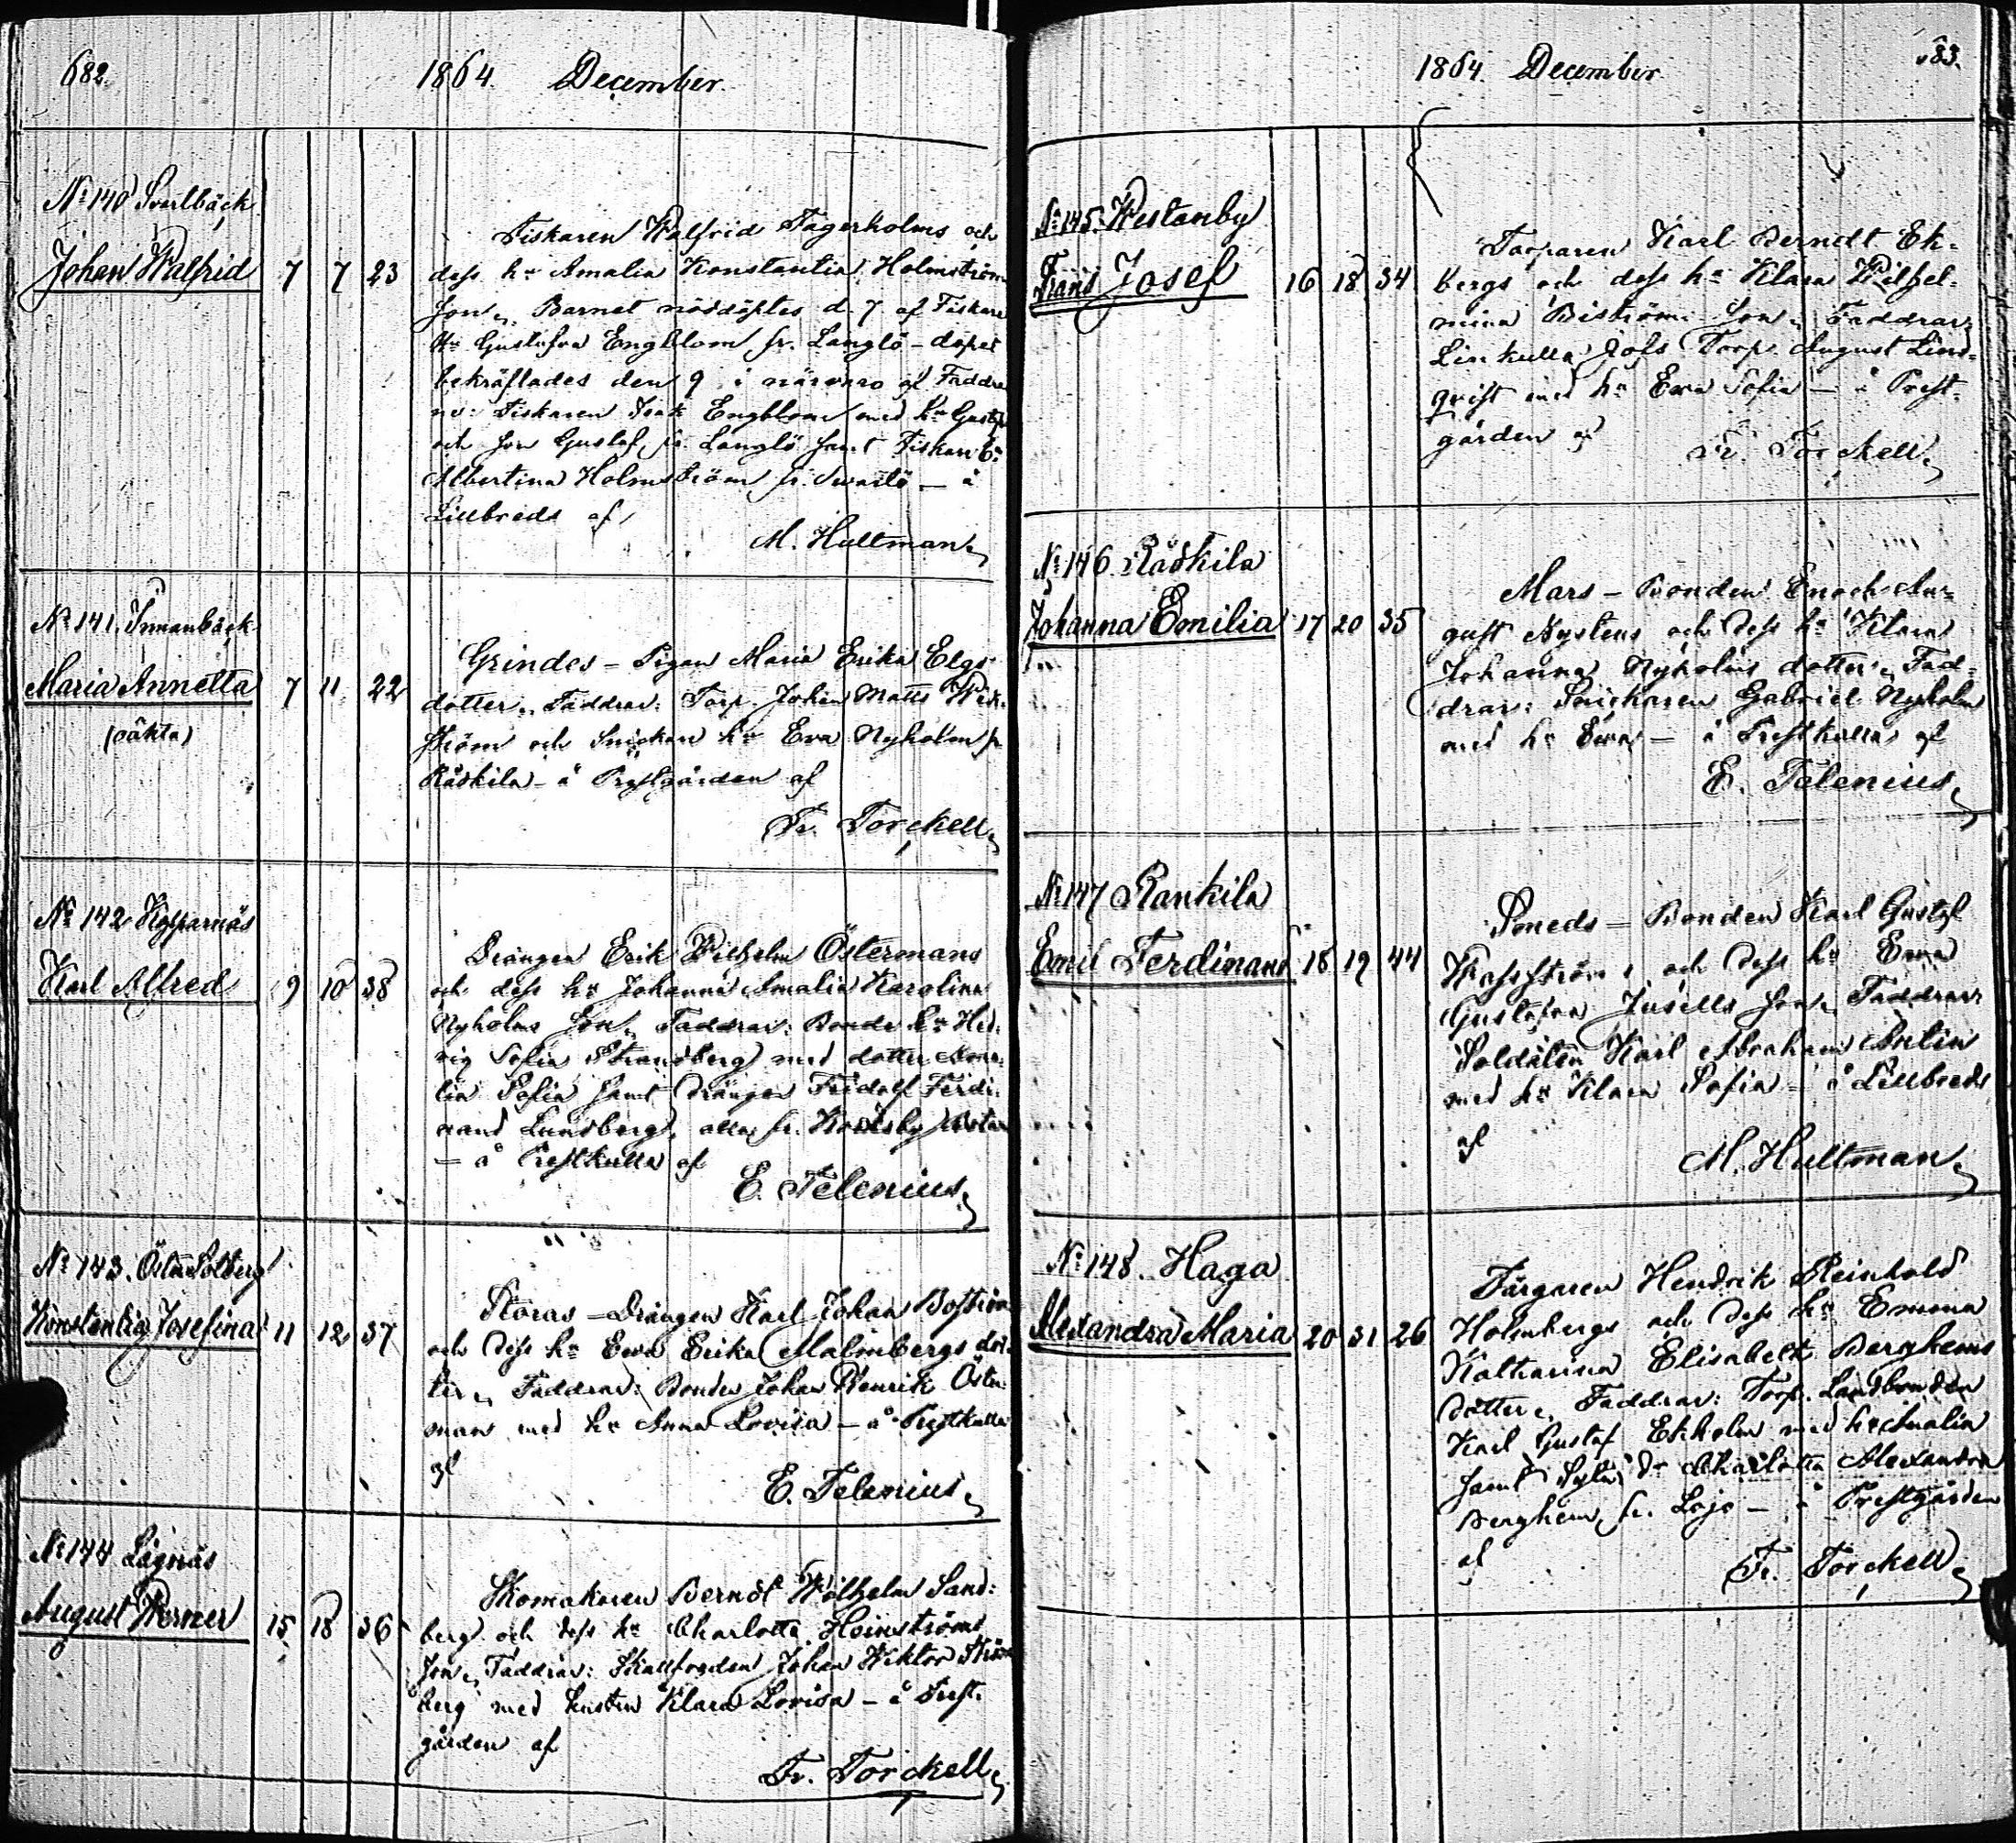 682.
1864. December.
No 140 Svartbäck
Johan Walfrid 7 7 23
Fiskaren Walfrid Fagerholms och
dess hu Amalia Konstantia Holmström
son. Barnet nöddöptes d. 7 af Fiskare
hu Gustafva Engblom fr. Långlö - dopet
bekräftades den 9 i närvaro af Faddra
ne: Fiskaren Isak Engblom med hu Gustafva
och son Gustaf, fr. Långlö samt Fiskare
Albertina Holmström fr. Svartö - å
Lillbreds af
M. Hultman.
No 141. Innanbäck
Maria Annetta 7 11 22
(oäkta)
Grindes - Pigan Maria Erika Elgs
dotter. Faddrar: Torp. Johan Matts Wik-
ström och Snickare hu Eva Nyholm fr
Räskila - å Prestgården af
Fr. Torckell.
No 142 Kopparnäs
Karl Alfred 9 10 38
Drängen Erik Wilhelm Östermans
och dess hu Johanna Amalia Karolina
Nyholms son. Faddrar: Bonde hu Hed-
vig Sofia Strandberg med dotter Ama-
lia Sofia samt Drängen Fridolf Ferdi-
nand Lundberg, alla fr.
- å Prestkulla af
E. Telenius.
No 143. Östersolberg
Konstantia Josefina 11 12 37
Storas - Drängen Karl Johan Boström
och dess hu Eva Erika Malmbergs dot-
ter. Faddrar: Bonden Johan Henrik Öster-
man med hu Anna Lovisa - å Prestkulla
af
E. Telenius.
No 144 Lågnäs
August Werner 15 18 36
Skomakaren Berndt Wilhelm Sand-
berg och dess hu Charlotta Heinströms
son. Faddrar: Johan Wiktor
berg med hustru Klara Lovisa - å Prest-
gården af
Fr. Torckell.
1864. December
683.
No 145. Westanby
Frans Josef 16 18 34
Torparen Karl Berndt Ek-
bergs och dess hu Klara Wilhel-
mina Biström son. Faddrar:
Linkulla Torp August Lind-
qvist med hu Eva Sofia - å Prest-
gården af
Fr. Torckell.
No 146 Räskila
Johanna Emilia 17 20 35
Mars - Bonden Enoch Au-
gust Nystens och dess hu Klara
Johanna Nyholms dotter. Fad-
drar: Snickaren Gabriel Nyholm
med hu Eva - å Prestkulla af
E. Telenius.
No 147 Rankila
Emil Ferdinand 18 19 44
Smeds - Bonden Karl Gustaf
Wasström och dess hu Eva
Gustafva Jusells son. Faddrar:
Soldaten Karl Abraham Anlin
med hu Klara Sofia - å Lillbreds
af
M. Hultman.
No 148. Haga
Alexandra Maria 20 31 26
Färgaren Hendrik Reinhold
Holmbergs och dess hu Emma
Katharina Elisabeth Berghems
dotter. Faddrar: Torp. Landbonden
Karl Gustaf Ekholm med hu Amalia
samt Charlotta Alexandra
Berghem, fr. Lojo - å Prestgården
af
Fr. Torckell.